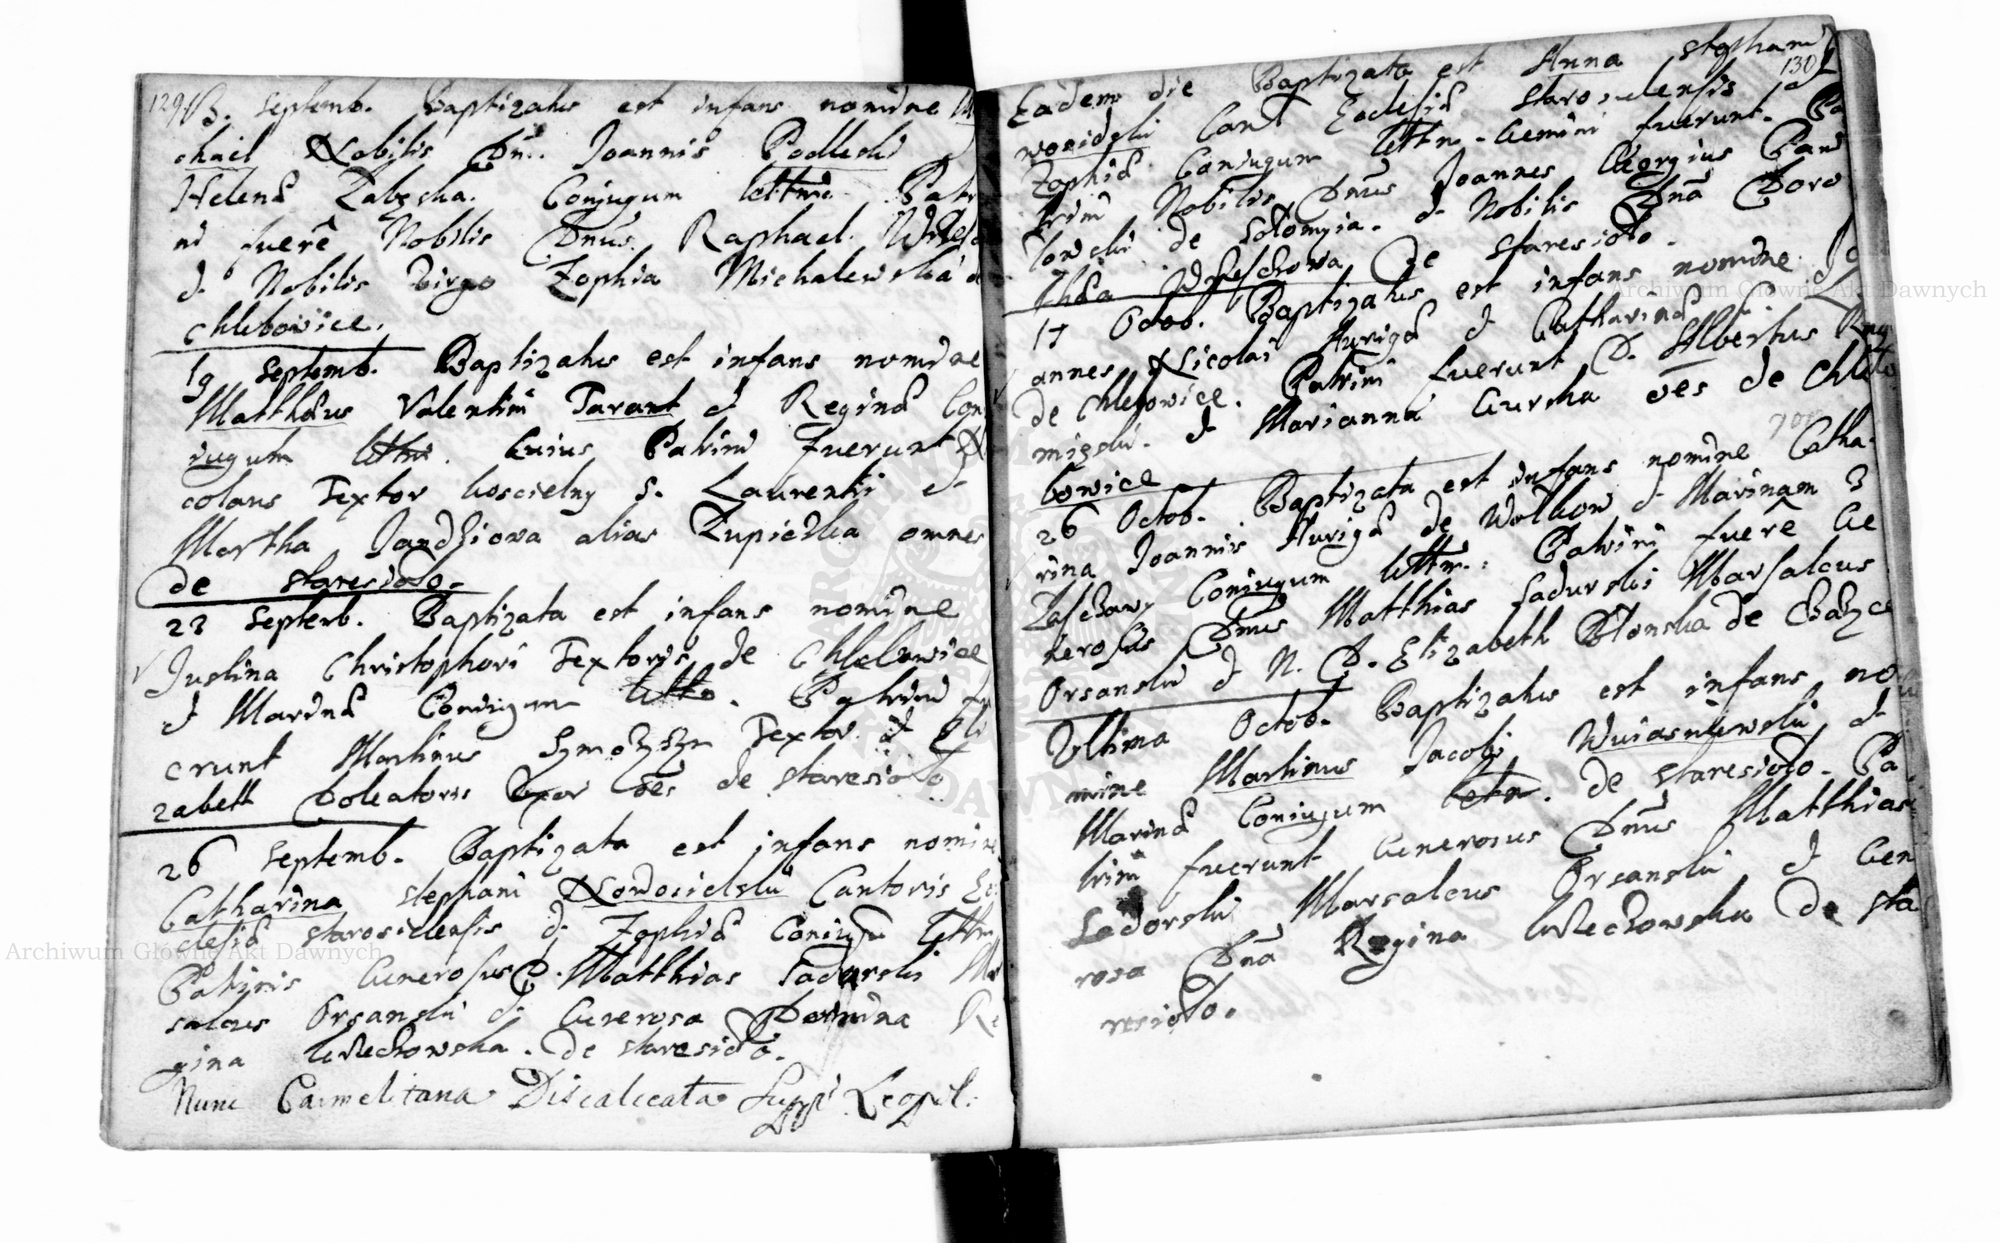 129
13. Septemb. Baptizatus est infans nomine Mi
chael Nobilis Dni. Joannis Podleski
Helena Zabska. Conjugum lettmo. Patri
ni fuerē Nobilis Dnus Raphael
& Nobilis Virgo Zophia Michalewska de
Chlebowice.
19 Septemb. Baptizatus est infans nomine
Matthæus Valentini Tarant & Reginæ Con
iugum lettm. Cuius Patrini fuerunt Ni
colaus Textor koscielny S. Laurentii &
Martha Jandziowa alias Lupiczka omnes
de Staresioło.
23 Septerb. Baptizata est infans nomine
Justina Christophori Textoris de Chlebowice
& Marinæ Coniugum lettm. Patrini fu
erunt Martinus Textor & Eli
zabett Doleatoris Uxor oēs de Staresioło
26 Septemb. Baptizata est infans nomine
Catharina Stephani Nowosielski Cantoris Ec
clesiæ Starosielensis & Zophiæ Coniugū lettm
Patrinis Generosus D. Matthias Sadurski Mar
salcus Orsanski & Generosa Domina Re
gina de Staresioło.
Nunc Carmelitana Discalceata Leopol:
130
Eadem die Baptizata est Anna Stephani
Cant Eccłesiæ Starosielensis &
Zophiæ Coniugum lettm - Gemini fuerunt. Pa
trini Nobilis Dnus Joannes Georgius Paw
łowski de Sołomyia. & Nobilis Dna Doro
thea De Staresioło.
17 Octob. Baptizatus est infans nomine Jo
annes Nicolai Aurigæ & Catharinæ
de Chlebowice. Patrini fuerunt D. Albertus
& Marianna Gurska oēs de Chle
bowice
26 Octob. Baptizata est infans nomine Catha-
rina Joannis Aurigæ de Wołkow & Marinam
Coniugum lettm.: Patrini fuerē Ge
nerosus Dnus Matthias Sadurski Marsalcus
Orsanski & N. D. Elizabeth Błonska de
Ultima Octob. Baptizatus est infans no
mine Martinus Jacobi Wuiasniewski &
Marinæ Coniugum lettm. de Staresioło. Pa
trini fuerunt Generosus Dnus Matthias
Sadorski Marsalcus Orsanski & Gen
rosa Dnā Regina de Sta
resioło.
Archiwum Główne Akt Dawnych
Archiwum Główne Akt Dawnych